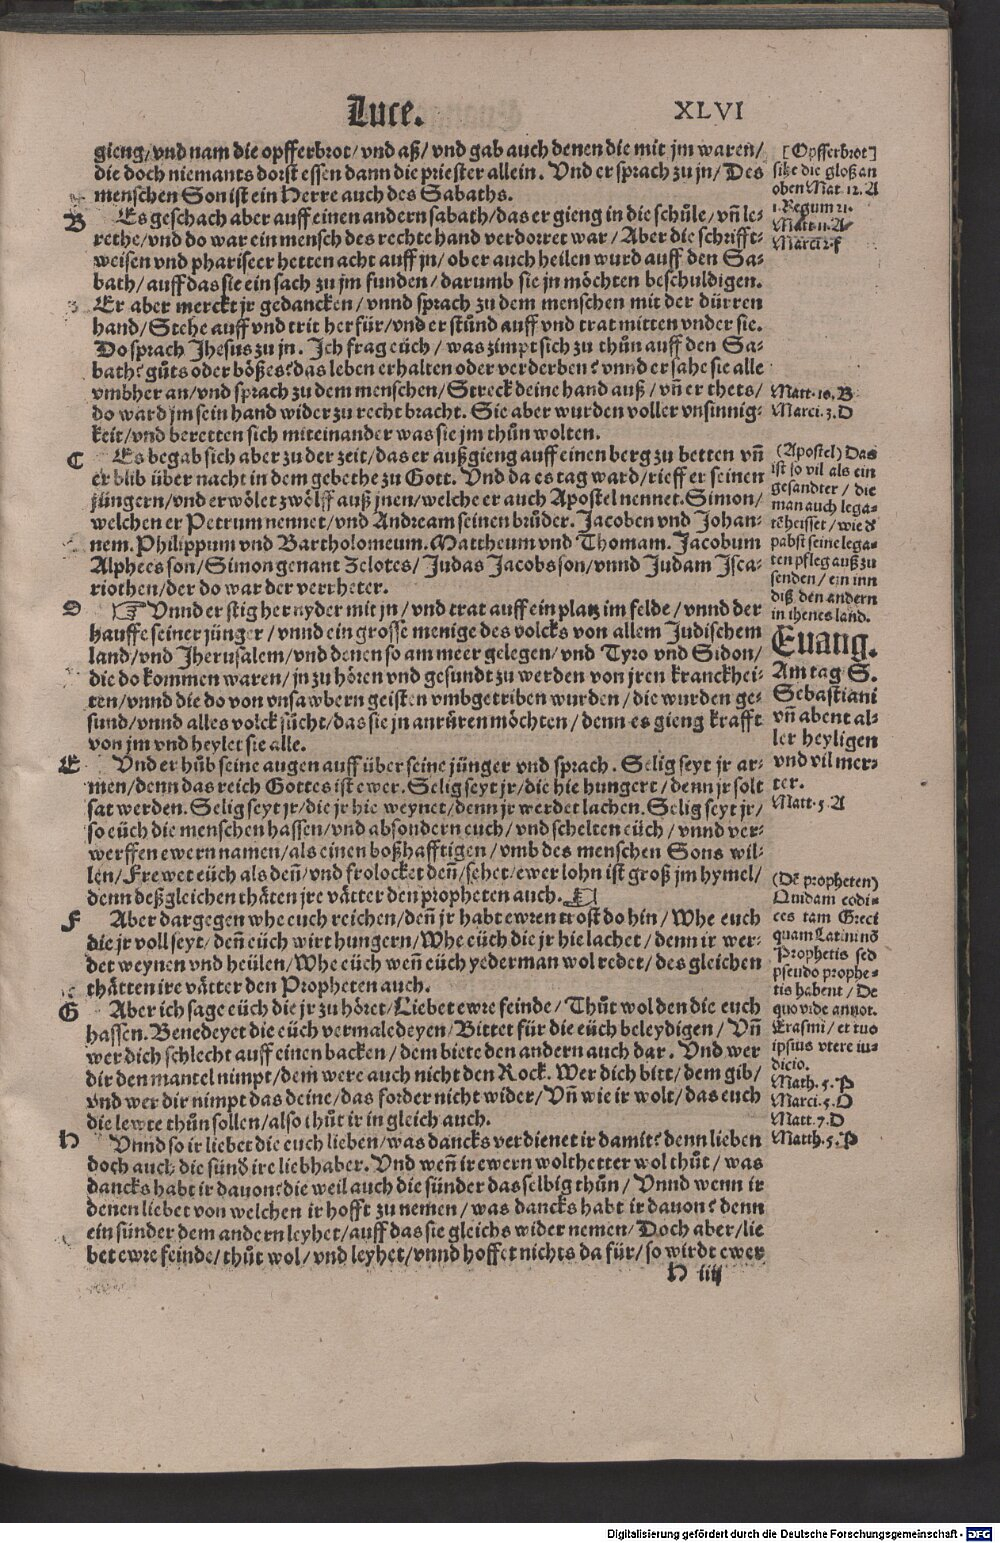 Luce.
XLVI
gieng/vnd nam die opfferbrot/vnd aß/vnd gab auch denen die mit jm waren/
die doch niemants dorst essen dann die priester allein. Vnd er sprach zu jn/Des
menschen Son ist ein Herre auch des Sabaths.
B
Es geschach aber auff einen andern sabath/das er gieng in die schůle/vñ le-
rethe/vnd do war ein mensch des rechte hand verdorret war/Aber die schrifft-
weisen vnd phariseer hetten acht auff jn/ober auch heilen wurd auff den Sa-
bath/auff das sie ein sach zu jm funden/darumb sie jn möchten beschuldigen.
Er aber merckt jr gedancken/vnnd sprach zu dem menschen mit der dürren
hand/Stehe auff vnd trit her für/vnd er stůnd auff vnd trat mitten vnder sie.
Do sprach Jhesus zu jn. Jch frag eüch/was zimpt sich zu thůn auff den Sa-
bath? gůts oder bößes? das leben erhalten oder verderben? vnnd er sahe sie alle
vmbher an/vnd sprach zu dem menschen/Streck deine hand auß/vñ er thets/
do ward jm sein hand wider zu recht bracht. Sie aber wurden voller vnsinnig-
keit/vnd beretten sich miteinander was sie jm thůn wolten.
C
Es begab sich aber zu der zeit/das er außgieng auff einen berg zu betten vñ
er blib über nacht in dem gebethe zu Gott. Vnd da es tag ward/rieff er seinen
jüngern/vnd erwölet zwölff auß jnen/welche er auch Apostel nennet. Simon/
welchen er Petrum nennet/vnd Andream seinen brůder. Jacoben vnd Johan-
nem. Philippum vnd Bartholomeum. Mattheum vnd Thomam. Jacobum
Alphees son/Simon genant Zelotes/Judas Jacobs son/vnnd Judam Jsca-
riothen/der do war der verrheter.
D
☞ Vnnd er stig hernyder mit jn/vnd trat auff ein platz im felde/vnnd der
hauffe seiner jünger/vnnd ein grosse menige des volcks von allem Judischem
land/vnd Jherusalem/vnd denen so am meer gelegen/vnd Tyro vnd Sidon/
die do kommen waren/jn zu hören vnd gesundt zu werden von jren kranckhei-
ten/vnnd die do von vnsawbern geisten vmbgetriben wurden/die wurden ge-
sund/vnnd alles volck sůcht/das sie jn anrüren möchten/denn es gieng krafft
von jm vnd heylet sie alle.
E
Vnd er hůb seine augen auff über seine jünger vnd sprach. Selig seyt jr ar-
men/denn das reich Gottes ist ewer. Selig seyt jr/die hie hungert/denn jr solt
sat werden. Selig seyt jr/die jr hie weynet/denn jr werdet lachen. Selig seyt jr/
so eüch die menschen hassen/vnd absondern euch/vnd schelten eüch/vnnd ver-
werffen ewern namen/als einen boßhafftigen/vmb des menschen Sons wil-
len/Frewet eüch als deñ/vnd frolocket deñ/sehet/ewer lohn ist groß jm hymel/
denn deßgleichen thäten jre vätter den propheten auch.
F
Aber dargegen whe euch reichen/deñ jr habt ewren trost do hin/Whe euch
die jr voll seyt/deñ eüch wirt hungern/Whe eüch die jr hie lachet/denn ir wer-
det weynen vnd heülen/Whe eüch weñ eüch yederman wol redet/des gleichen
thätten ire vätter den Propheten auch.
G
Aber ich sage eüch die jr zu höret/Liebet ewre feinde/Thůt wol den die euch
hassen. Benedeyet die eüch vermaledeyen/Bittet für die eüch beleydigen/Vñ
wer dich schlecht auff einen backen/dem biete den andern auch dar. Vnd wer
dir den mantel nimpt/dem were auch nicht den Rock. Wer dich bitt/dem gib/
vnd wer dir nimpt das deine/das forder nicht wider/Vñ wie ir wolt/das euch
die lewte thůn sollen/also thůt ir in gleich auch.
H
Vnnd so ir liebet die euch lieben/was dancks verdienet ir damit? denn lieben
doch auch die sünd ire liebhaber. Vnd weñ ir ewern wolthetter wol thůt/was
dancks habt ir dauon? die weil auch die sünder dasselbig thůn/Vnnd wenn ir
denen liebet von welchen ir hofft zu nemen/was dancks habt ir dauon? denn
ein sünder dem andern leyhet/auff das sie gleichs wider nemen/Doch aber/lie
bet ewre feinde/thůt wol/vnd leyhet/vnnd hoffet nichts da für/so wirdt ewer
H iiij
[Opfferbrot]
sihe die gloß an
oben Mat. 12. A
1. Regum 21.
Matt. 11. A
Marci 2. f
Matt. 10. B
Marci. 3. D
(Apostel) Das
ist so vil als ein
gesandter/die
man auch lega-
tē heisset/wie d
pabst seine lega-
ten pfleg auß zu
senden/ein inn
diß den andern
in thenes land.
Euang.
Am tag S.
Sebastiani
vñ abent al-
ler heyligen
vnd vil mer-
ter.
Matt. 5. A
(Dē propheten)
Quidam codi-
ces tam Greci
quam Latini nō
Prophetis sed
pseudo prophe-
tis habent/De
quo vide annot.
Erasmi/et tuo
ipsius vtere iu-
dicio.
Math. 5. P
Marci. 5. D
Matt. 7. D
Matth. 5. P
Digitalisierung gefördert durch die Deutsche Forschungsgemeinschaft - DFG